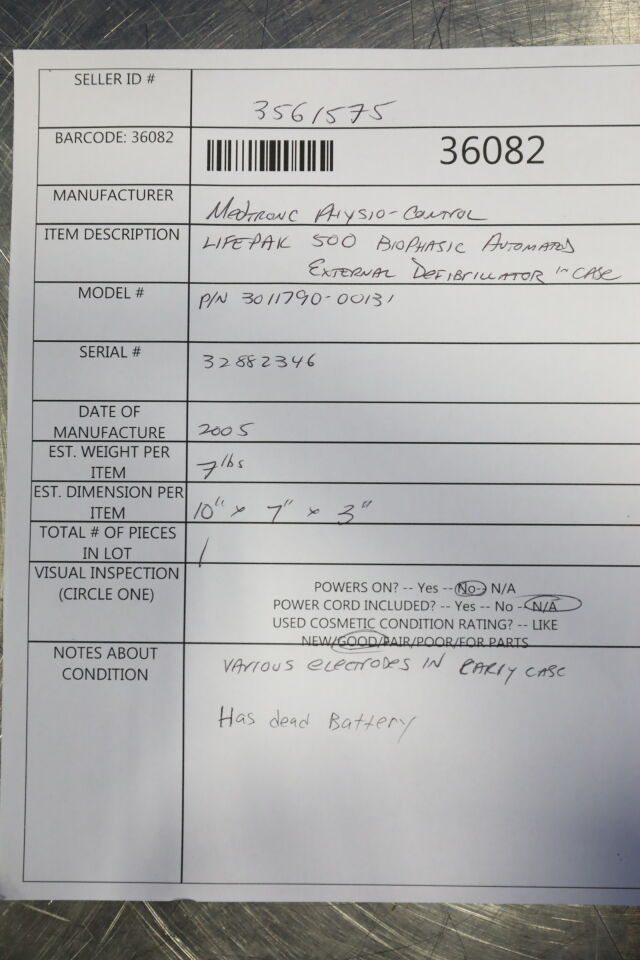 SELLER ID #
3561575
BARCODE: 36082
36082
MANUFACTURER
Medtronc Physio-Control
ITEM DESCRIPTION
LIFEPAK 500 BIOPHASIC AUTOMATED
EXTERNAL DEFIBRILLATOR in CASE
MODEL #
P/N 3011790-00131
SERIAL #
32882346
DATE OF
MANUFACTURE
2005
EST. WEIGHT PER
ITEM
7 lbs
EST. DIMENSION PER
ITEM
10" x 7" x 3"
TOTAL # OF PIECES
IN LOT
1
VISUAL INSPECTION
(CIRCLE ONE)
POWERS ON? -- Yes -- No -- N/A
POWER CORD INCLUDED? -- Yes -- No -- N/A
USED COSMETIC CONDITION RATING? -- LIKE
NEW/GOOD/FAIR/POOR/FOR PARTS
NOTES ABOUT
CONDITION
VARIOUS ELECTRODES IN CARRY CASE
Has dead Battery